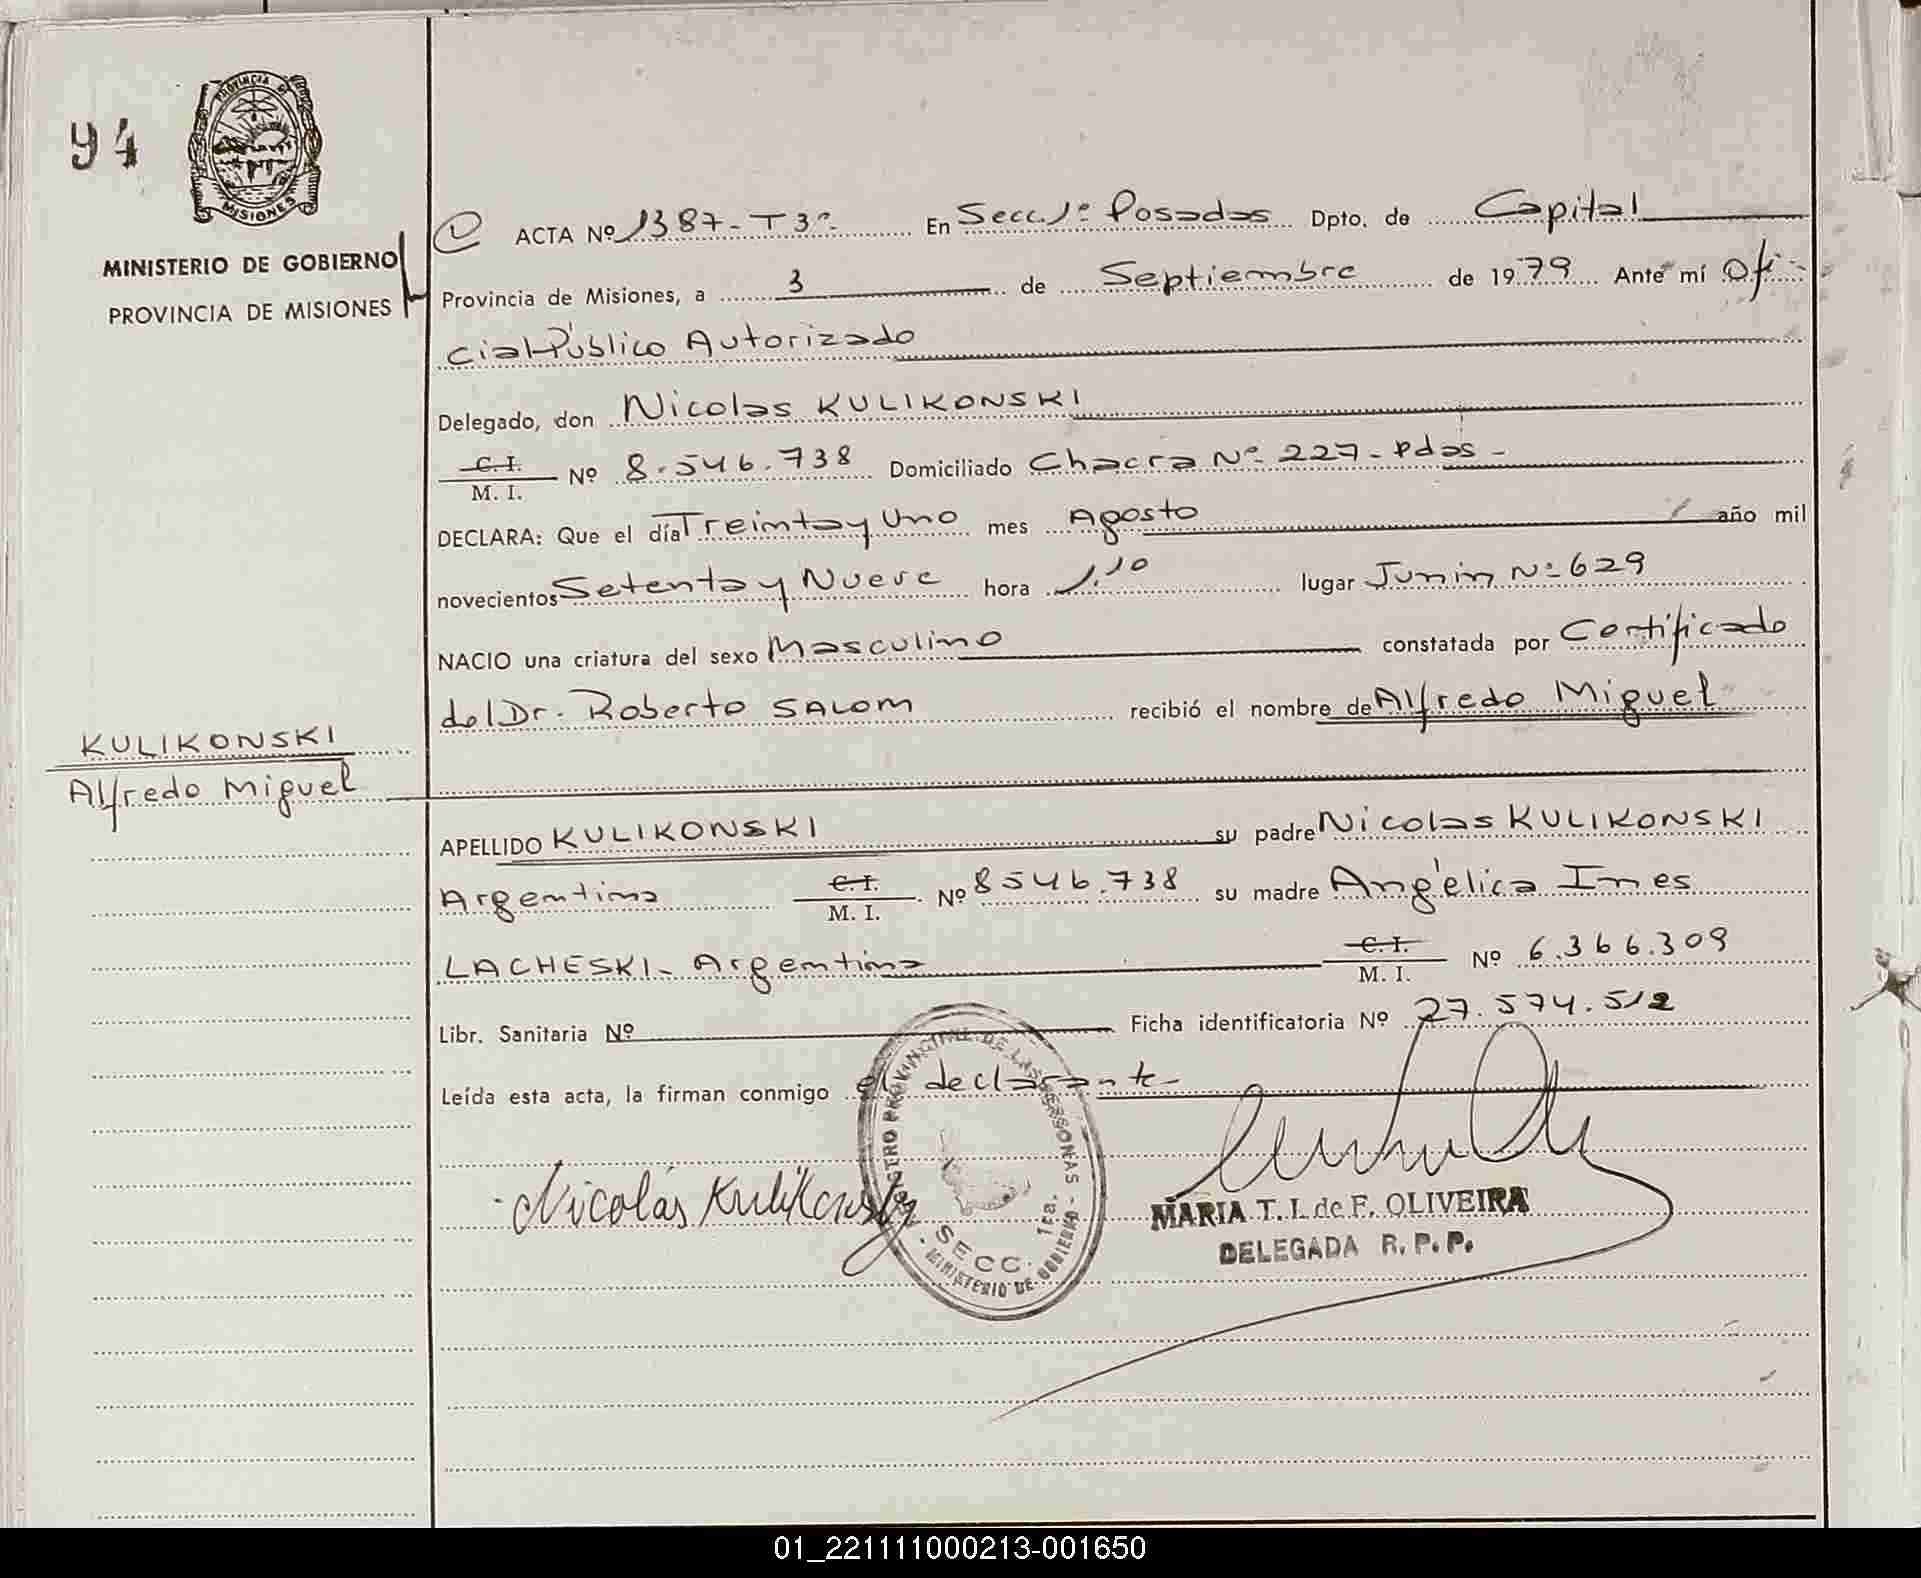 94
PROVINCIA DE
MISIONES
MINISTERIO DE GOBIERNO
PROVINCIA DE MISIONES
ACTA Nº 1387 - T 3º - En Secc. 1º Posadas Dpto. de Capital
Provincia de Misiones, a 3 de Septiembre de 1979 Ante mí Ofi-
cial Público Autorizado
Delegado, don Nicolas KULIKONSKI
C. I.
M. I. Nº 8.546.738 Domiciliado Chacra Nº 227 - Pdas -
DECLARA: Que el día Treinta y Uno mes Agosto año mil
novecientos Setenta y Nueve hora 1.10 lugar Junin Nº 629
NACIO una criatura del sexo Masculino constatada por Certificado
del Dr. Roberto SALOM recibió el nombre de Alfredo Miguel
KULIKONSKI
Alfredo Miguel
APELLIDO KULIKONSKI su padre Nicolas KULIKONSKI
Argentino C. I. M. I. Nº 8546.738 su madre Angélica Ines
LACHESKI - Argentina C. I. M. I. Nº 6.366.309
Libr. Sanitaria Nº Ficha identificatoria Nº 27.574.512
Leída esta acta, la firman conmigo el declarante
Nicolás Kulikonski
REGISTRO PROVINCIAL DE LAS PERSONAS -
SECC. 1ra.
- MINISTERIO DE GOBIERNO -
MARIA T. I. de F. OLIVEIRA
DELEGADA R. P. P.
01_221111000213-001650